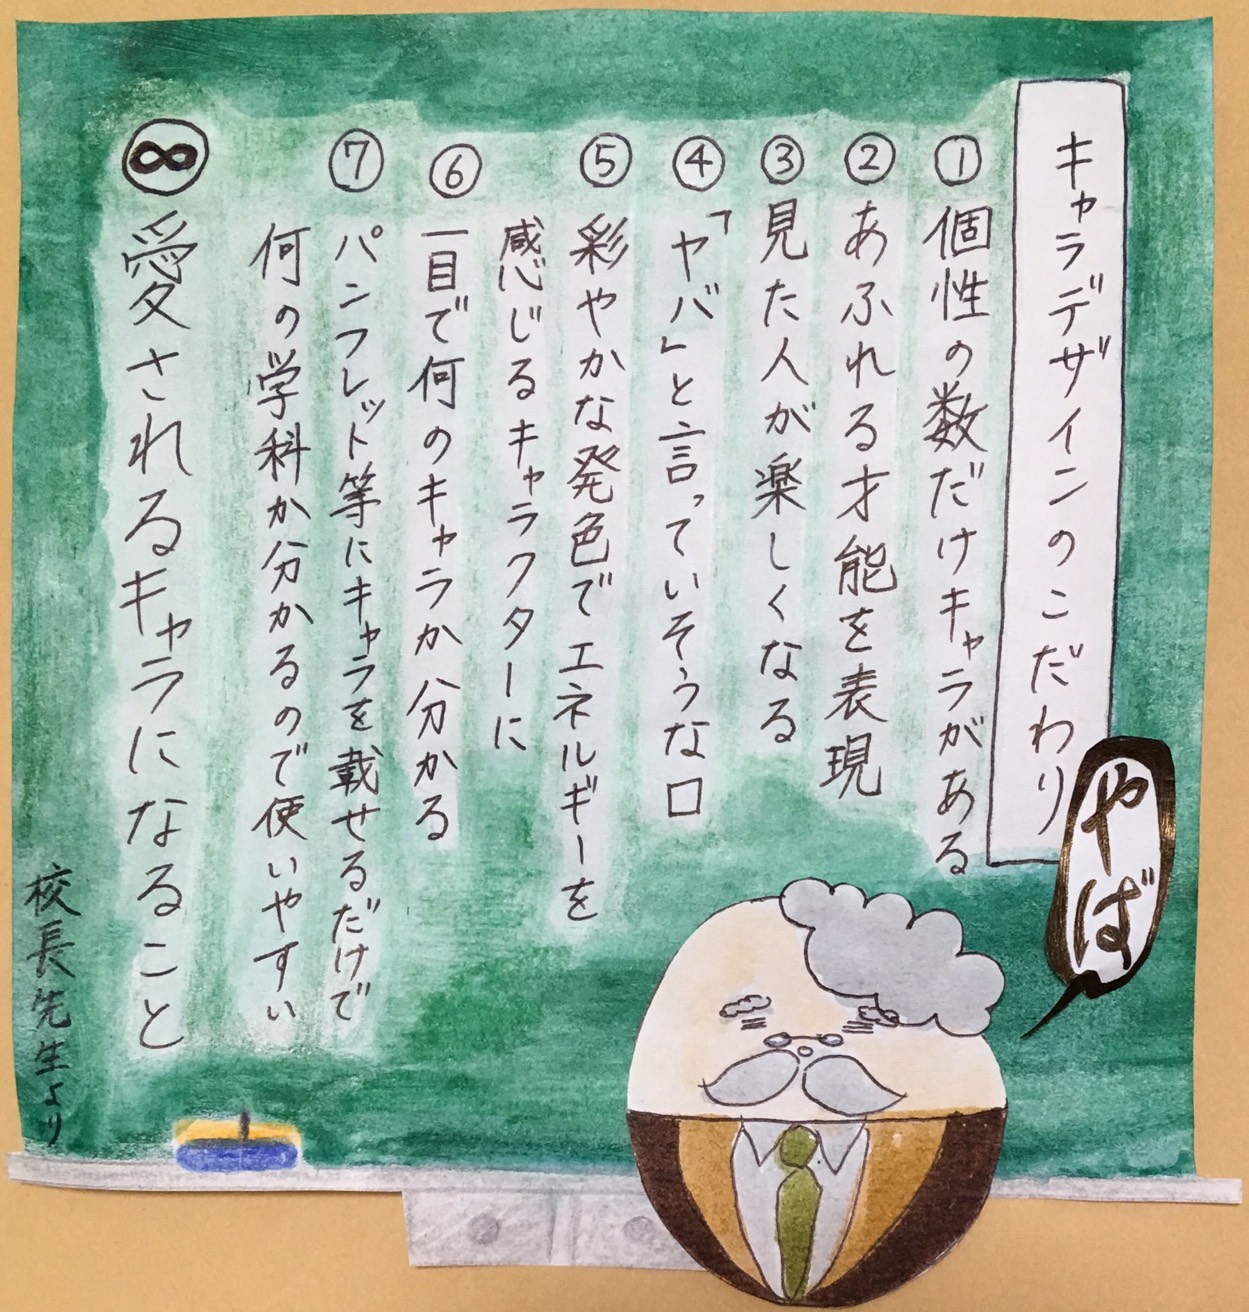 キャラデザインのこだわり
① 個性の数だけキャラがある
② あふれる才能を表現
③ 見た人が楽しくなる
④ 「ヤバ」と言っていそうな口
⑤ 彩やかな発色でエネルギーを
感じるキャラクターに
⑥ 一目で何のキャラか分かる
⑦ パンフレット等にキャラを載せるだけで
何の学科か分かるので使いやすい
∞ 愛されるキャラになること
校長先生より
やば